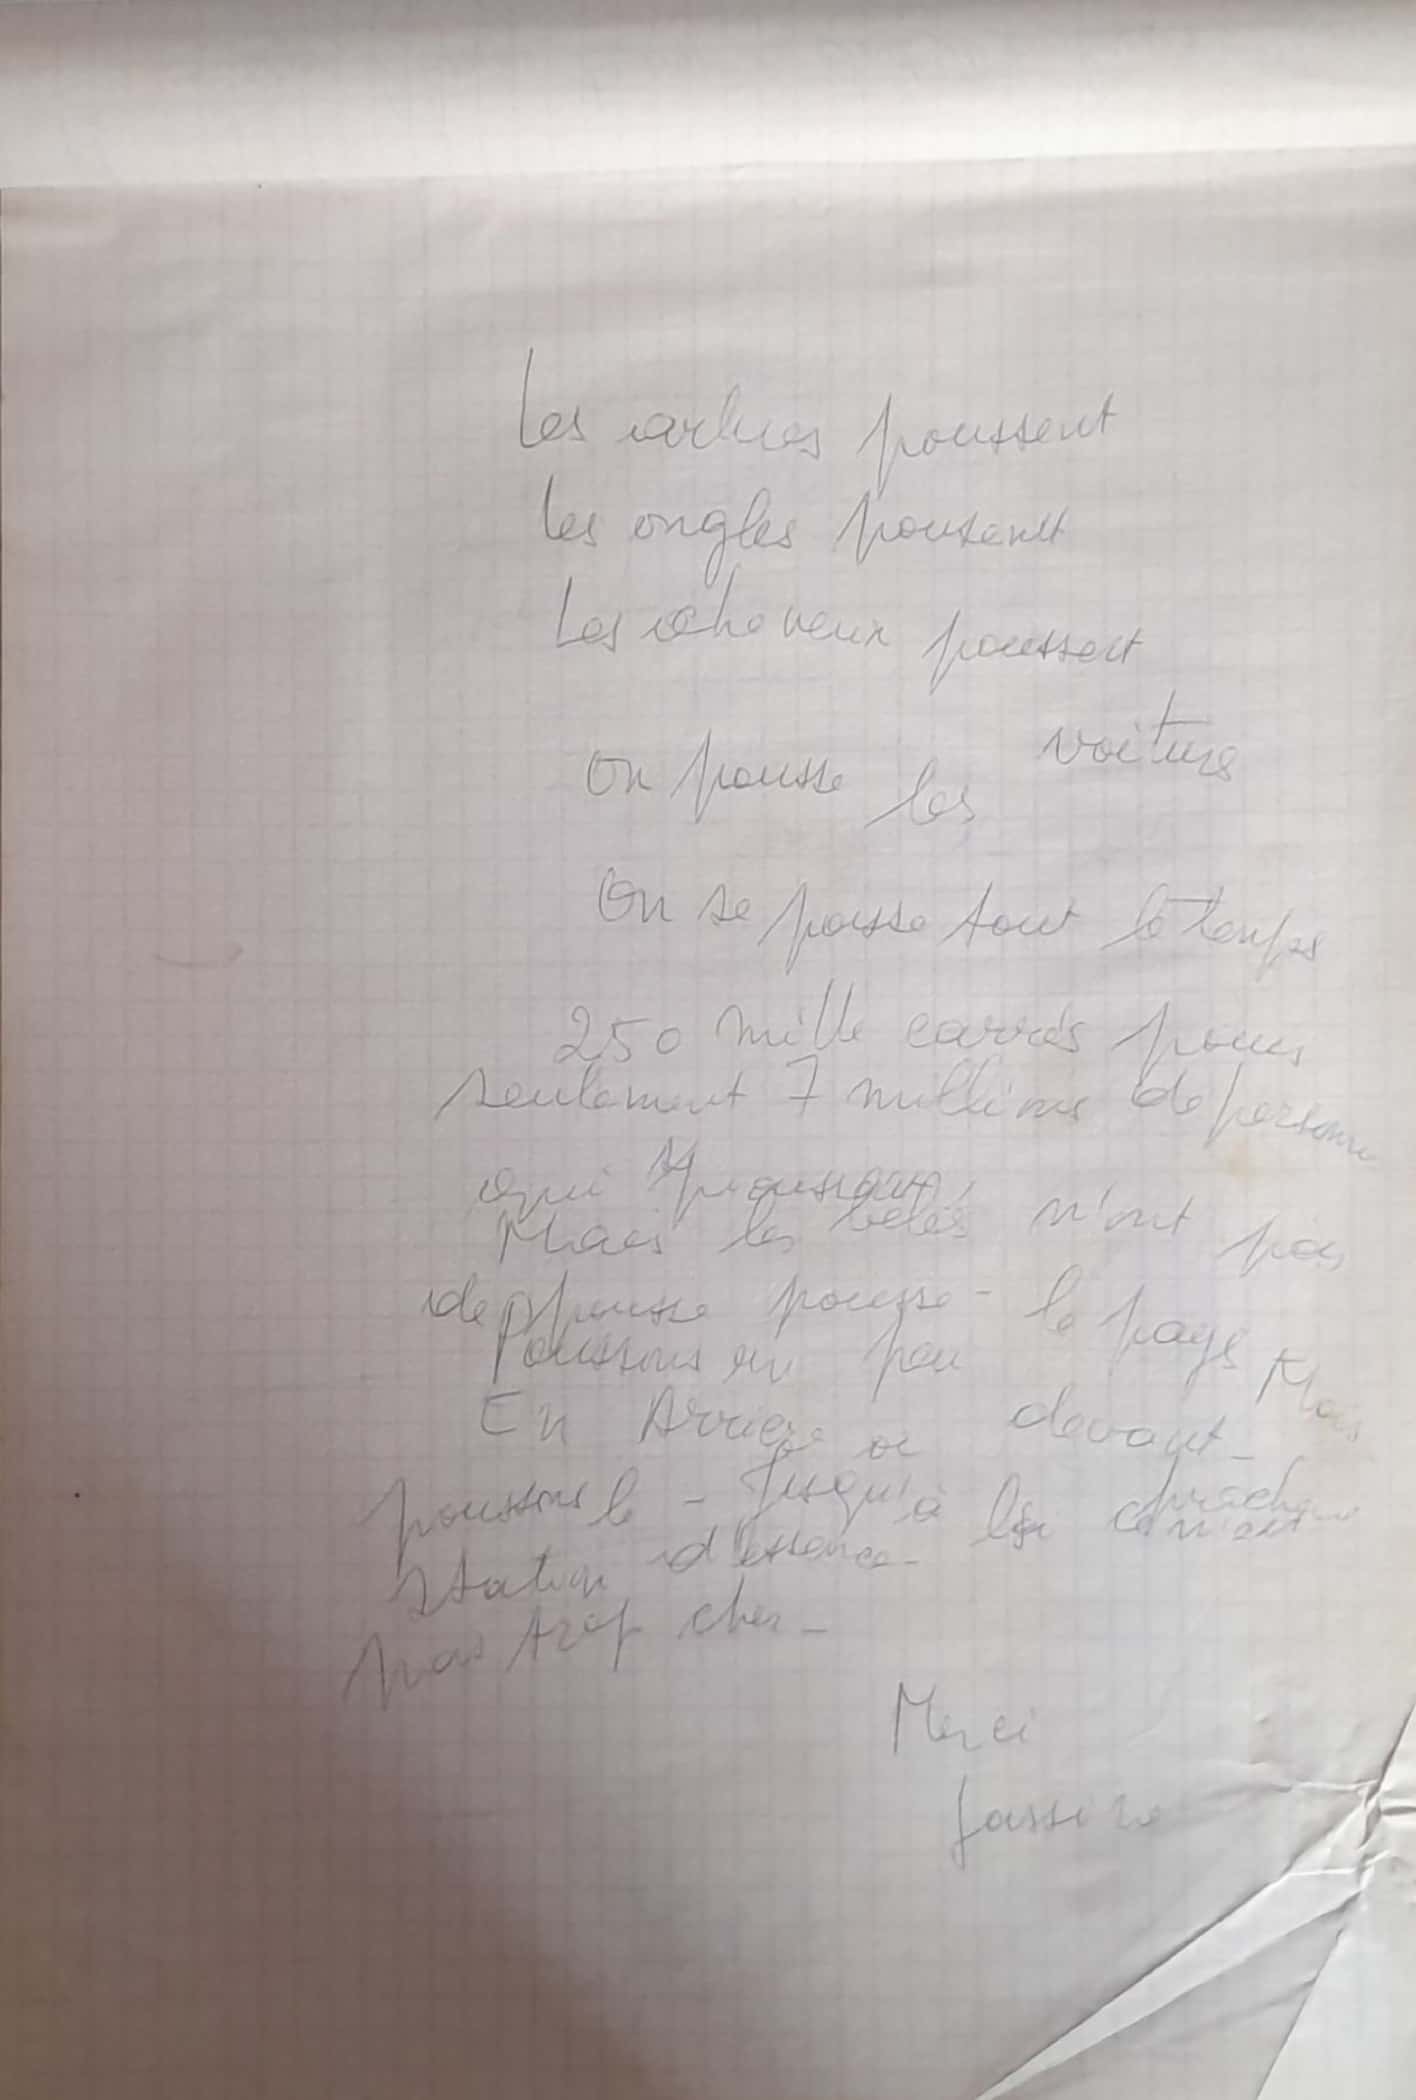 Les arbres poussent
les ongles poussent
Les cheveux poussent
On pousse les voitures
On se pousse tout le temps
250 mille carrés pour
seulement 7 millions de personne
qui poussent,
Mais les bébés n'ont pas
de pousse pousse - le pays
Poussons un peu Mais
En Arriere ou devant -
poussons le - Jusqu'à la prochaine
station d'essence - ce n'est
pas trop cher -
Merci